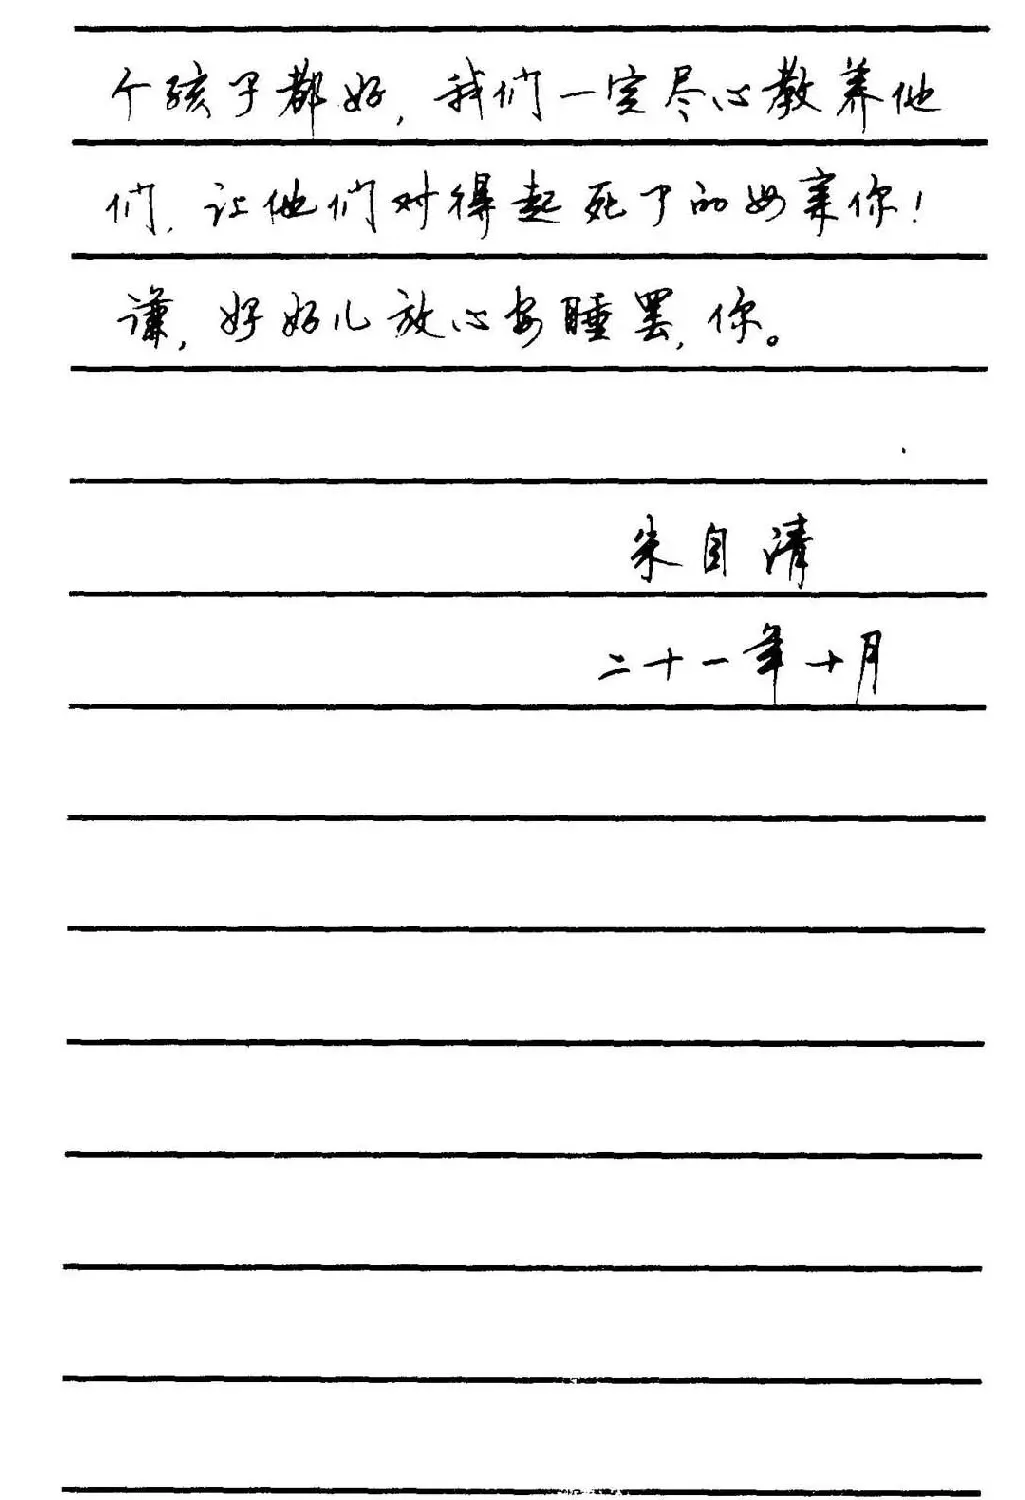 个孩子都好，我们一定尽心教养他
们，让他们对得起死了的母亲你！
谦，好好儿放心安睡罢，你。
朱自清
二十一年十月